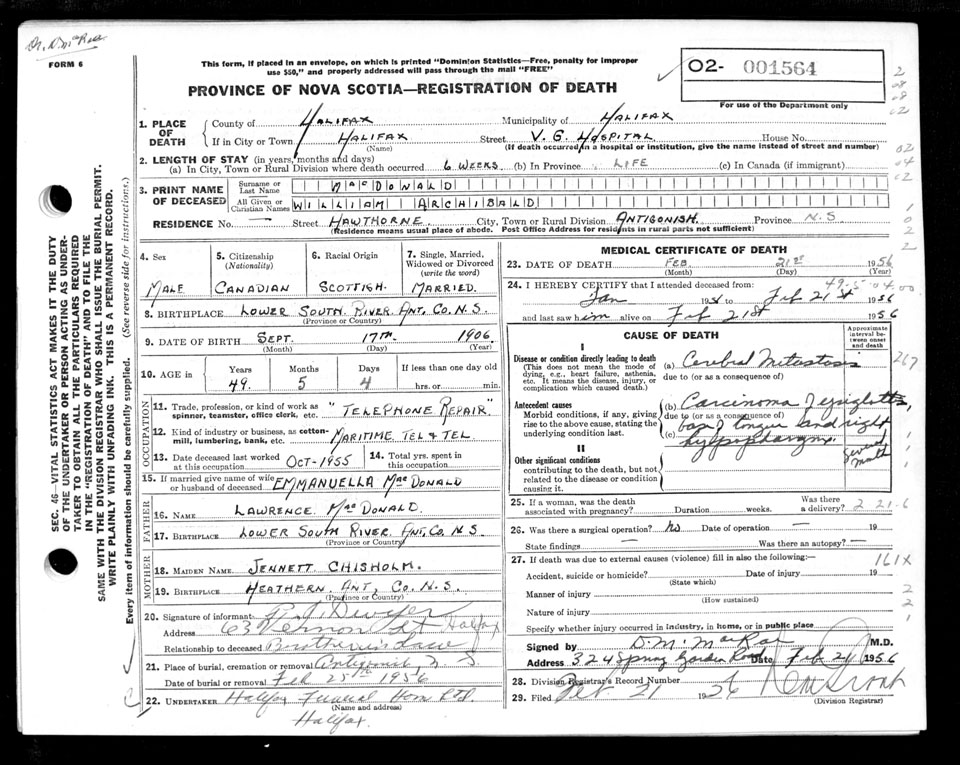 Dr. D. McRae
FORM 6
This form, if placed in an envelope, on which is printed "Dominion Statistics—Free, penalty for improper
use $50," and properly addressed will pass through the mail "FREE"
PROVINCE OF NOVA SCOTIA—REGISTRATION OF DEATH
O2- 001564
For use of the Department only
1. PLACE OF DEATH
County of HALIFAX Municipality of HALIFAX
If in City or Town HALIFAX Street V. G. HOSPITAL House No.
(Name) (If death occurred in a hospital or institution, give the name instead of street and number)
2. LENGTH OF STAY (in years, months and days)
(a) In City, Town or Rural Division where death occurred 6 WEEKS (b) In Province LIFE (c) In Canada (if immigrant)
3. PRINT NAME OF DECEASED
Surname or Last Name MACDONALD
All Given or Christian Names WILLIAM ARCHIBALD
RESIDENCE No. — Street HAWTHORNE City, Town or Rural Division ANTIGONISH. Province N.S
(Residence means usual place of abode. Post Office Address for residents in rural parts not sufficient)
4. Sex
MALE
5. Citizenship
(Nationality)
CANADIAN
6. Racial Origin
SCOTTISH.
7. Single, Married, Widowed or Divorced
(write the word)
MARRIED.
8. BIRTHPLACE LOWER SOUTH RIVER. ANT. CO. N.S.
(Province or Country)
9. DATE OF BIRTH SEPT. 17TH. 1906.
(Month) (Day) (Year)
10. AGE in Years Months Days If less than one day old
49. 5 4 hrs. or min.
OCCUPATION
11. Trade, profession, or kind of work as spinner, teamster, office clerk, etc. "TELEPHONE REPAIR."
12. Kind of industry or business, as cotton-mill, lumbering, bank, etc. MARITIME TEL & TEL
13. Date deceased last worked at this occupation OCT-1955
14. Total yrs. spent in this occupation
15. If married give name of wife or husband of deceased EMMANUELLA MacDONALD
FATHER
16. NAME LAWRENCE MacDONALD.
17. BIRTHPLACE LOWER SOUTH RIVER ANT, CO. N.S
(Province or Country)
MOTHER
18. MAIDEN NAME JENNETT CHISHOLM.
19. BIRTHPLACE HEATHERN. ANT, CO. N.S.
(Province or Country)
20. Signature of informant Dwyer
Address 63 Vernon St Halifax
Relationship to deceased Brother in Law
21. Place of burial, cremation or removal Antigonish N. S.
Date of burial or removal Feb 25th 1956
22. UNDERTAKER Halifax Funeral Home Ltd.
(Name and address)
Halifax.
MEDICAL CERTIFICATE OF DEATH
23. DATE OF DEATH FEB 21st 1956
(Month) (Day) (Year)
24. I HEREBY CERTIFY that I attended deceased from:
Jan 19 to Feb 21st 1956
and last saw him alive on Feb 21st 1956
CAUSE OF DEATH
Approximate interval between onset and death
I
Disease or condition directly leading to death
(This does not mean the mode of dying, e.g., heart failure, asthenia, etc. It means the disease, injury, or complication which caused death.)
(a) Cerebral Metastasis
due to (or as a consequence of)
Antecedent causes
Morbid conditions, if any, giving rise to the above cause, stating the underlying condition last.
(b) Carcinoma of epiglottis,
due to (or as a consequence of)
base of tongue and right
(c) hypopharynx.
Several Months
II
Other significant conditions
contributing to the death, but not related to the disease or condition causing it.
25. If a woman, was the death associated with pregnancy? Duration weeks. Was there a delivery?
26. Was there a surgical operation? No Date of operation — 19
State findings — Was there an autopsy? —
27. If death was due to external causes (violence) fill in also the following:—
Accident, suicide or homicide? Date of injury 19
(State which)
Manner of injury
(How sustained)
Nature of injury
Specify whether injury occurred in industry, in home, or in public place
Signed by D. M. MacRae M.D.
Address 324 Spring Garden Road Date Feb 21 1956
28. Division Registrar's Record Number
29. Filed Feb 21 1956
(Division Registrar)
SEC. 46—VITAL STATISTICS ACT MAKES IT THE DUTY
OF THE UNDERTAKER OR PERSON ACTING AS UNDER-
TAKER TO OBTAIN ALL THE PARTICULARS REQUIRED
IN THE "REGISTRATION OF DEATH" AND TO FILE THE
SAME WITH THE DIVISION REGISTRAR WHO SHALL ISSUE THE BURIAL PERMIT.
WRITE PLAINLY WITH UNFADING INK. THIS IS A PERMANENT RECORD.
Every item of information should be carefully supplied. (See reverse side for instructions.)
267
161X